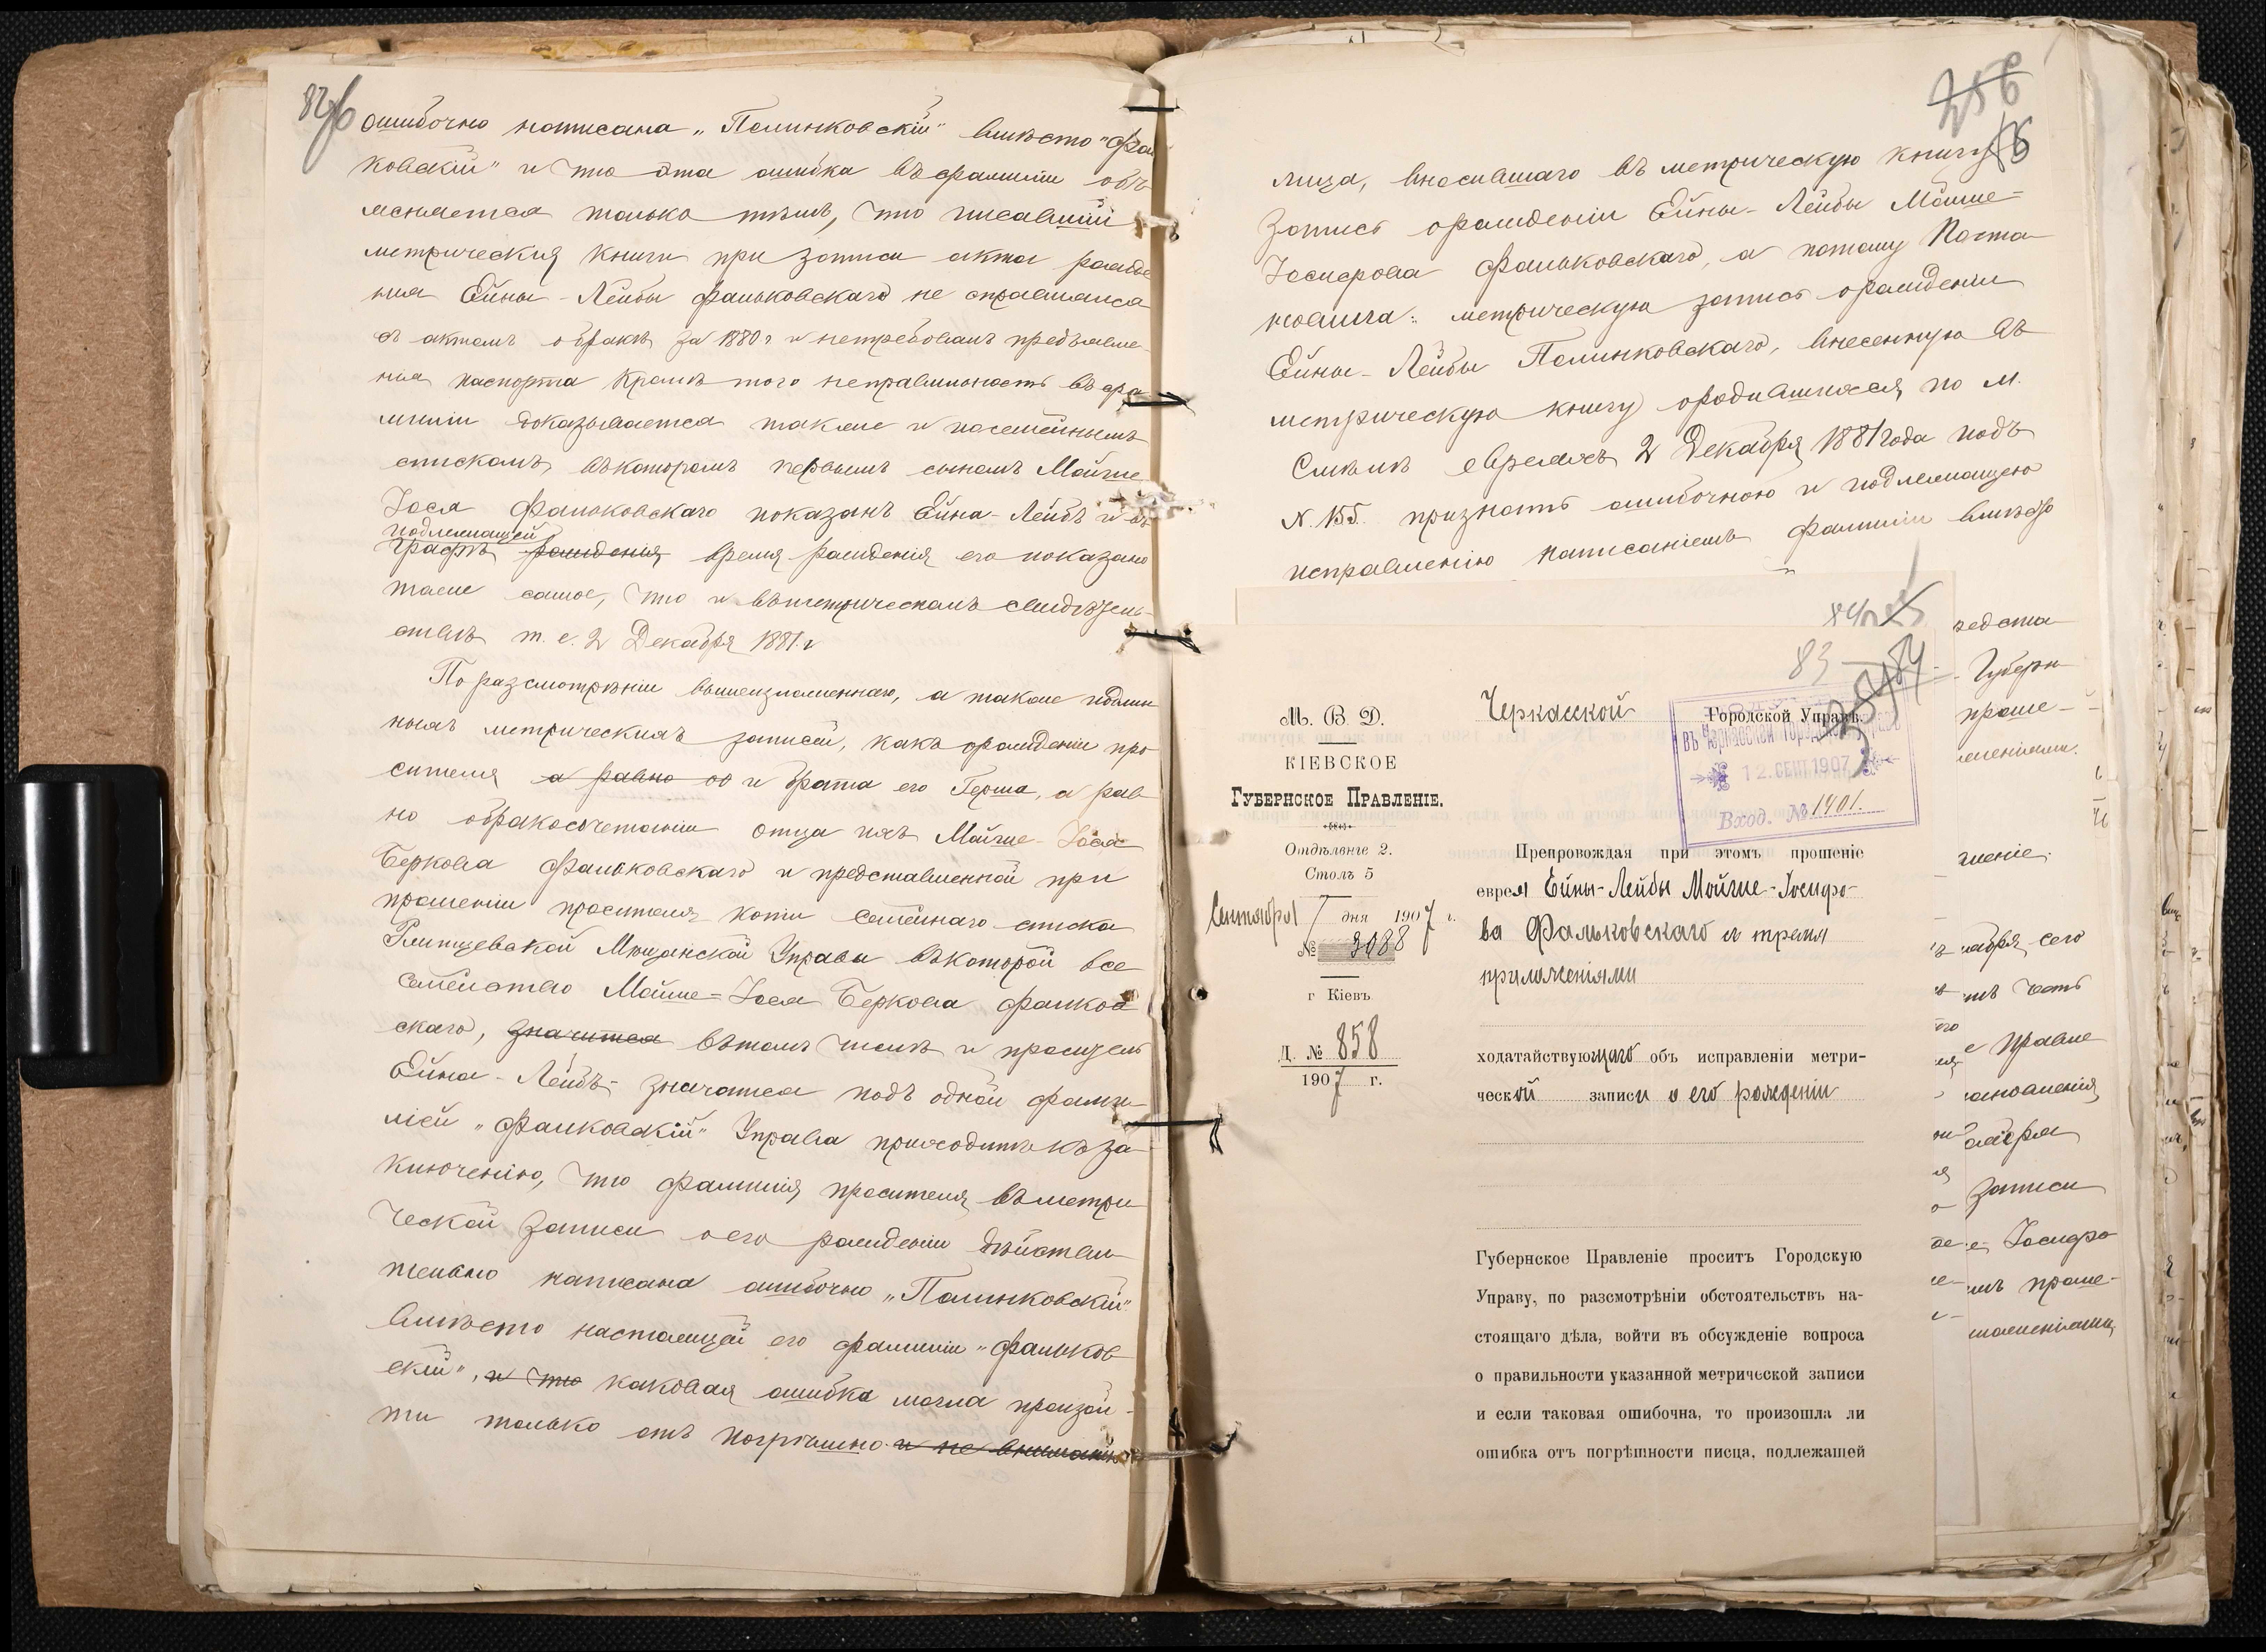 ошибочно написана „Полинковскій" вмѣсто „Фаль
ковскій" и что эта ошибка въ фамиліи объ
ясняется только тѣмъ, что писавшій
метрическія книги при записи акта рожде
нія Ейны-Лейбы Фальковскаго не справлялся
съ актомъ о бракѣ за 1880 г и нетребовалъ предъявле-
нія паспорта Кромѣ того неправильность въ фа
миліи доказывается также и посемейнымъ
спискомъ, въ которомъ первымъ сыномъ Мойше
Іося Фальковскаго показанъ Ейна-Лейбъ и въ
подлежащей
графѣ рожденія время рожденія его показано
тоже самое, что и въ метрическомъ свидѣтель-
ствѣ т. е. 2 Декабря 1881 г
По разсмотрѣніи вышеизложеннаго, а также подлин
ныхъ метрическихъ записей, какъ о рожденіи про
сителя а равно об и брата его Герша, а рав
но о бракосочетаніи отца ихъ Мойше-Іося
Беркова Фальковскаго и представленной при
прошеніи просителя копіи семейнаго списка
Мѣщанской Управы въ которой все
семейство Мойше=Іося Беркова Фальков
скаго, значится въ томъ числѣ и проситель
Ейна-Лейбъ- значатся подъ одной фами-
ліей „Фальковскій" Управа приходитъ къ за-
ключенію, что фамилія просителя въ метри
ческой записи о его рожденіи дѣйстви-
тельно написана ошибочно „Полинковскій"
вмѣсто настоящей его фамиліи „Фальков
скій", и что каковая ошибка могла произой-
ти только отъ погрѣшно и не вниманія
256
лица, вносившаго въ метрическую книгу
запись о рожденіи Ейны-Лейбы Мойше-
Іосифова Фальковскаго, а потому Поста-
новила: метрическую запись о рожденіи
Ейны-Лейбы Полинковскаго, внесенную въ
метрическую книгу о родившихся по м.
Смѣлѣ евреяхъ 2 Декабря 1881 года подъ
N. 155. признать ошибочною и подлежащею
исправленію написаніемъ фамиліи вмѣсто
83
М. В. Д.
КІЕВСКОЕ
ГУБЕРНСКОЕ ПРАВЛЕНІЕ.
Отдѣленіе 2.
Столъ 5
Сентября 7 дня 1907 г.
№ 3088
г Кіевъ
Д. № 858
1907 г.
Черкасской Городской Управѣ.
въ Черкасской Городской Управѣ
12. СЕНТ. 1907
Вход. № 1901.
Препровождая при этомъ прошеніе
еврея Ейны-Лейбы Мойше-Іосифо-
ва Фальковскаго и тремя
приложеніями
ходатайствующаго объ исправленіи метри-
ческой записи о его рожденіи
Губернское Правленіе проситъ Городскую
Управу, по разсмотрѣніи обстоятельствъ на-
стоящаго дѣла, войти въ обсужденіе вопроса
о правильности указанной метрической записи
и если таковая ошибочна, то произошла ли
ошибка отъ погрѣшности писца, подлежащей
Губерн
проше-
сего
Правле
записи
Іосифо
проше-